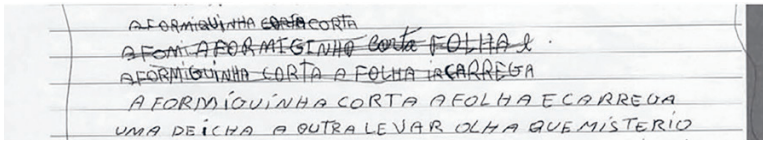 AFORMIQUINHA CORTACORTA
AFOMI AFORMIGINHO corta FOLHA e.
AFORMIGUINHA CORTA A FOLHA IRCARREGA
A FORMIGUINHA CORTA AFOLHA E CARREGA
UMA DEICHA A OUTRA LEVAR OLHA QUE MISTERIO